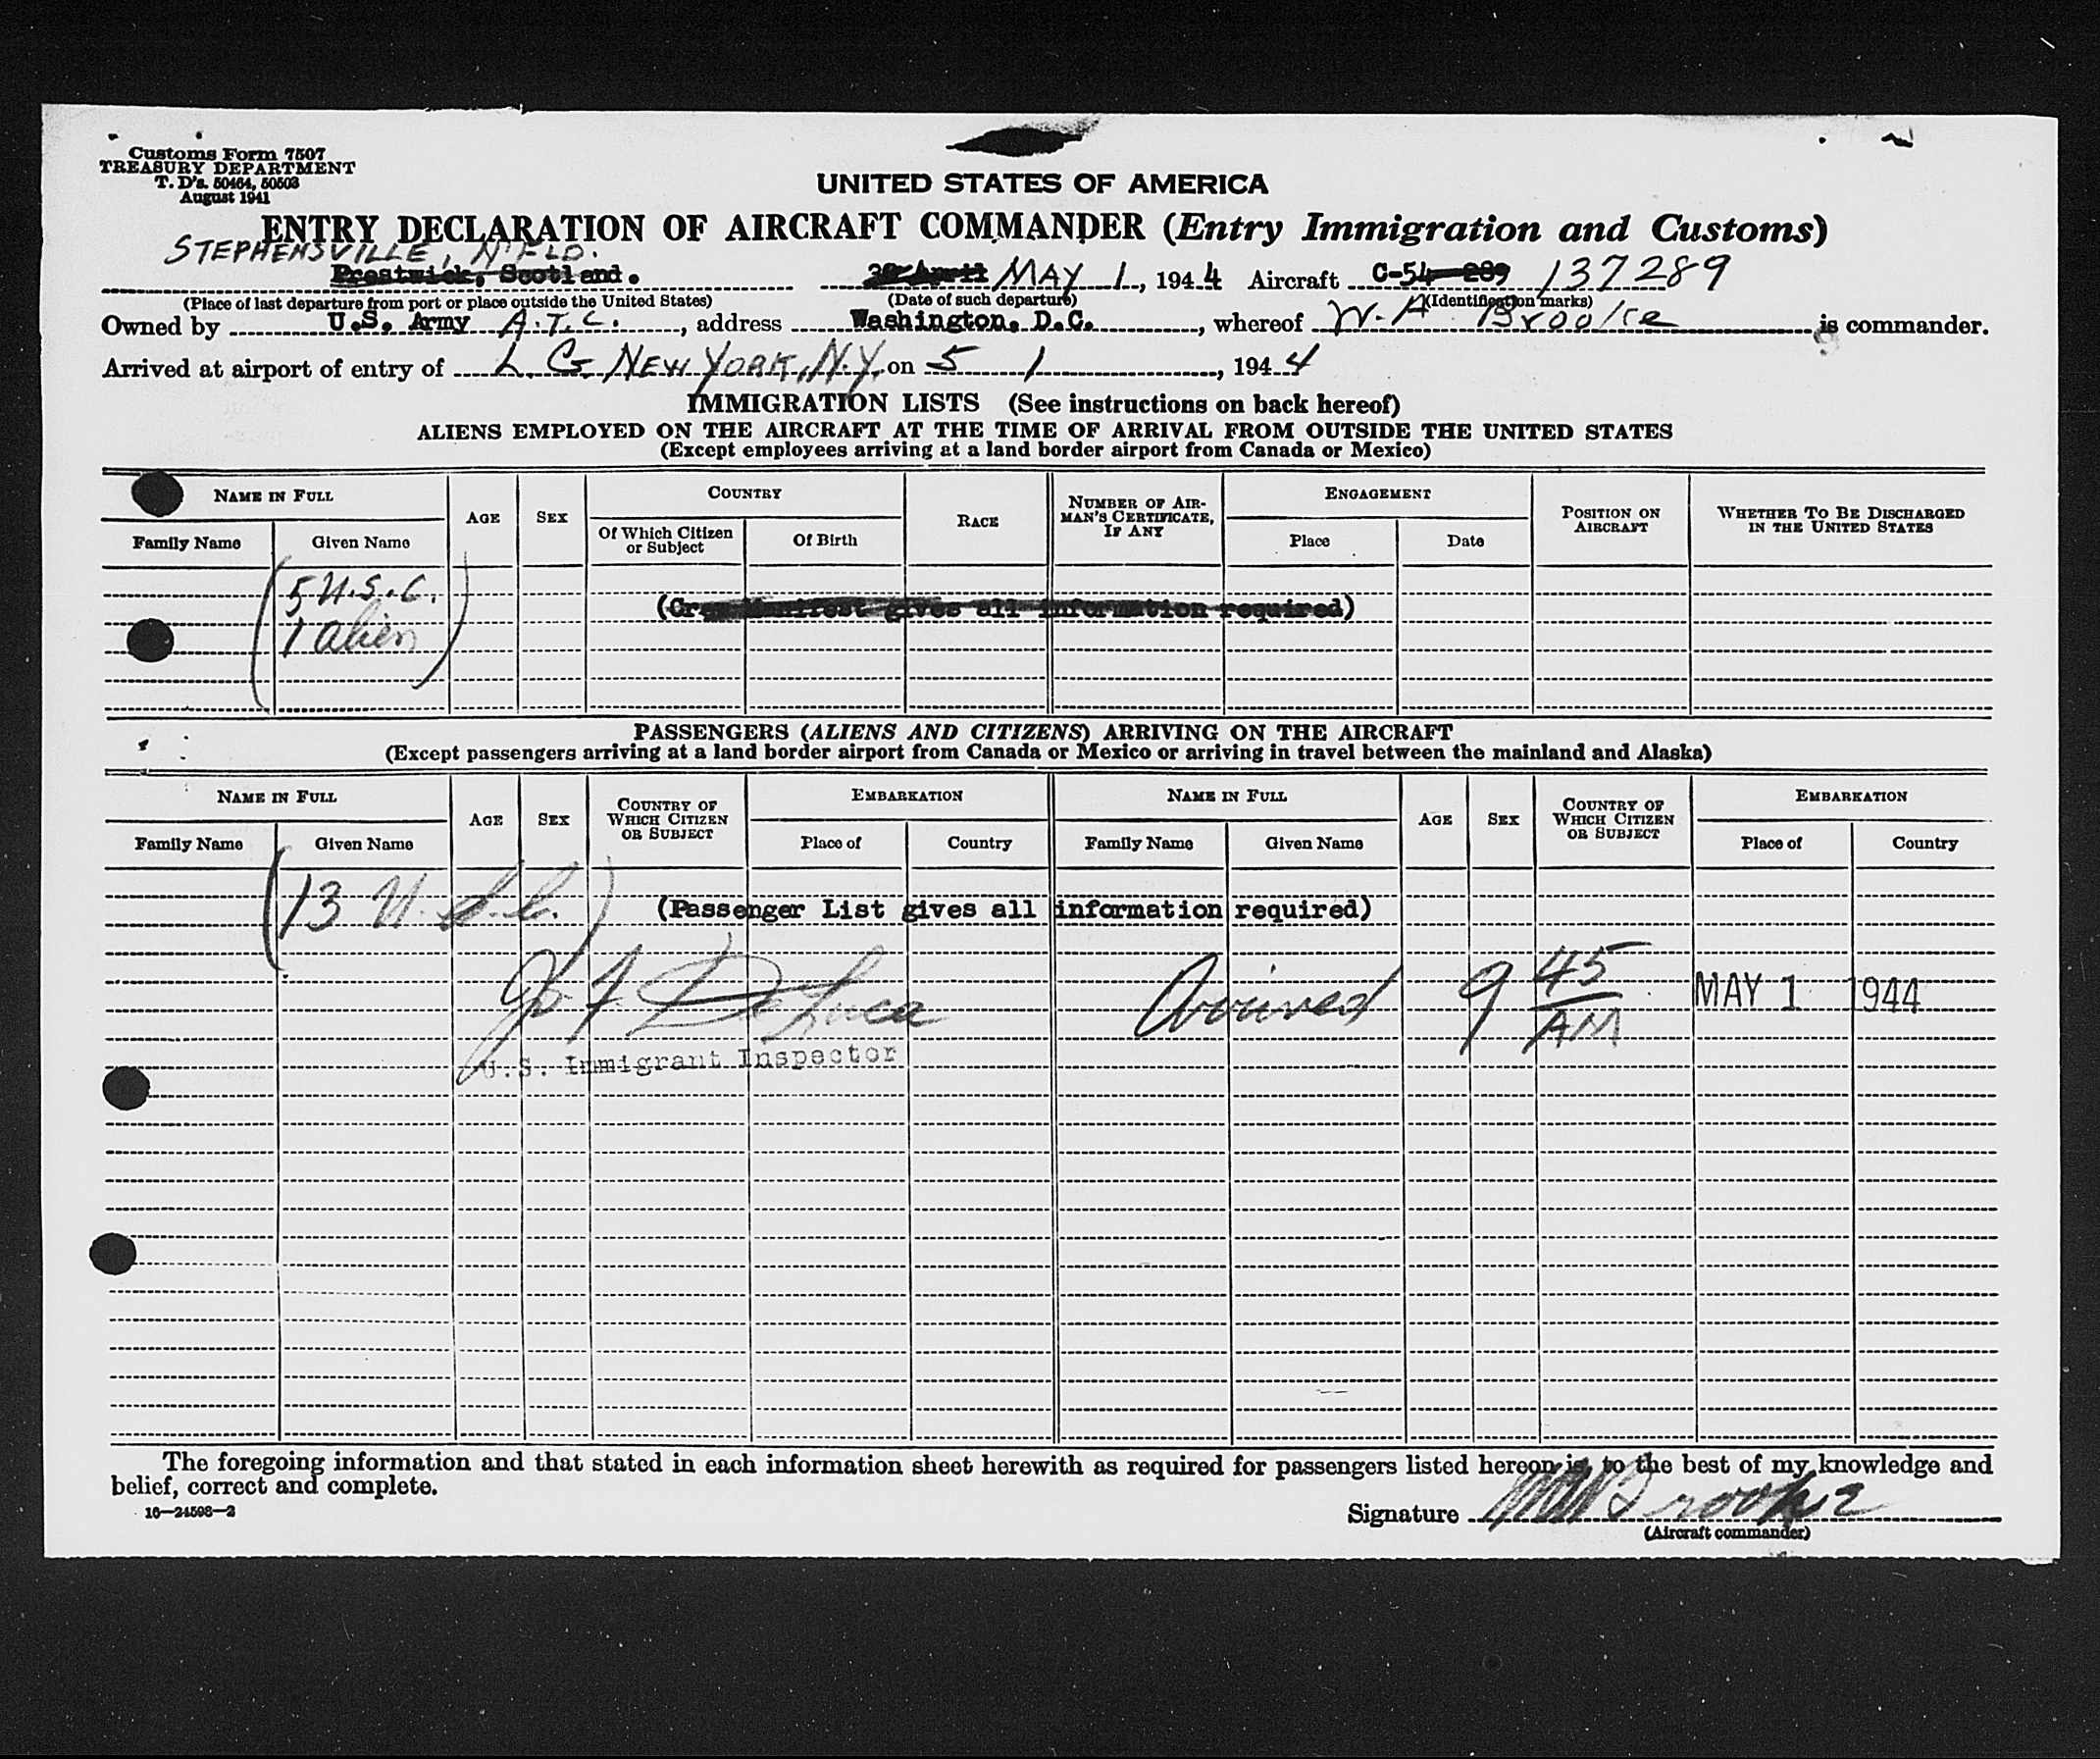 Customs Form 7507
TREASURY DEPARTMENT
T. D's. 50464, 50503
August 1941
UNITED STATES OF AMERICA
ENTRY DECLARATION OF AIRCRAFT COMMANDER (Entry Immigration and Customs)
STEPHENSVILLE, N'FLD.
Prestwick, Scotland. 30 April MAY 1, 1944 Aircraft C-54-289 137289
(Place of last departure from port or place outside the United States) (Date of such departure) (Identification marks)
Owned by U.S. Army A.T.C., address Washington, D.C., whereof W. A. Brooke is commander.
Arrived at airport of entry of L. G. NEW YORK, N.Y. on 5 1, 1944
IMMIGRATION LISTS (See instructions on back hereof)
ALIENS EMPLOYED ON THE AIRCRAFT AT THE TIME OF ARRIVAL FROM OUTSIDE THE UNITED STATES
(Except employees arriving at a land border airport from Canada or Mexico)
NAME IN FULL AGE SEX COUNTRY RACE NUMBER OF AIRMAN'S CERTIFICATE, IF ANY ENGAGEMENT POSITION ON AIRCRAFT WHETHER TO BE DISCHARGED IN THE UNITED STATES
Family Name Given Name Of Which Citizen or Subject Of Birth Place Date
(5 U.S.C.
1 alien)
(Crew Manifest gives all information required)
PASSENGERS (ALIENS AND CITIZENS) ARRIVING ON THE AIRCRAFT
(Except passengers arriving at a land border airport from Canada or Mexico or arriving in travel between the mainland and Alaska)
NAME IN FULL AGE SEX COUNTRY OF WHICH CITIZEN OR SUBJECT EMBARKATION NAME IN FULL AGE SEX COUNTRY OF WHICH CITIZEN OR SUBJECT EMBARKATION
Family Name Given Name Place of Country Family Name Given Name Place of Country
(13 U.S.C.) (Passenger List gives all information required)
F DeLuca Arrived 9 45 AM MAY 1 1944
U.S. Immigrant Inspector
The foregoing information and that stated in each information sheet herewith as required for passengers listed hereon is, to the best of my knowledge and
belief, correct and complete.
16—24598-2
Signature W A Brooke
(Aircraft commander)